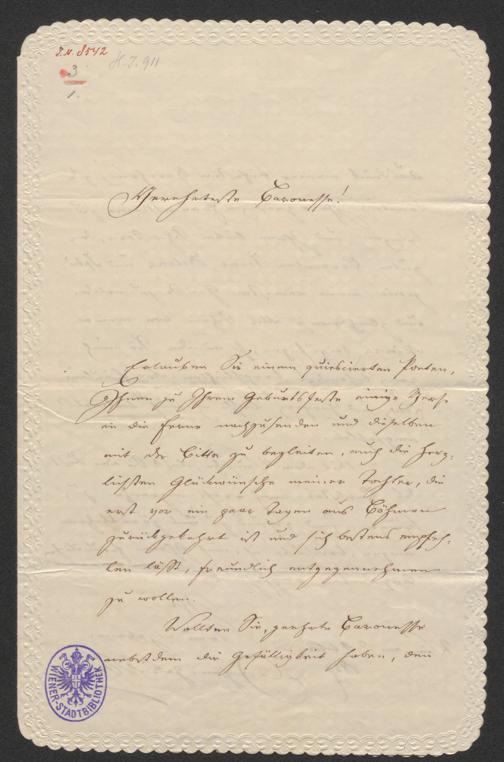 J.N. 8542
H.I. 911
3
1.
Verehrteste Baronesse!
Erlauben Sie einem quiescierten Poeten,
Ihnen zu Ihrem Geburtsfeste einige Verse
in die Ferne nachzusenden und dieselben
mit der Bitte zu begleiten, auch die herz-
lichsten Glückwünsche meiner Tochter, die
erst vor ein paar Tagen aus Böhmen
zurückgekehrt ist und sich bestens empfeh-
len läßt, freundlich entgegennehmen
zu wollen.
Wollten Sie, geehrte Baronesse
nebstdem die Gefälligkeit haben, den
WIENER-STADTBIBLIOTHEK